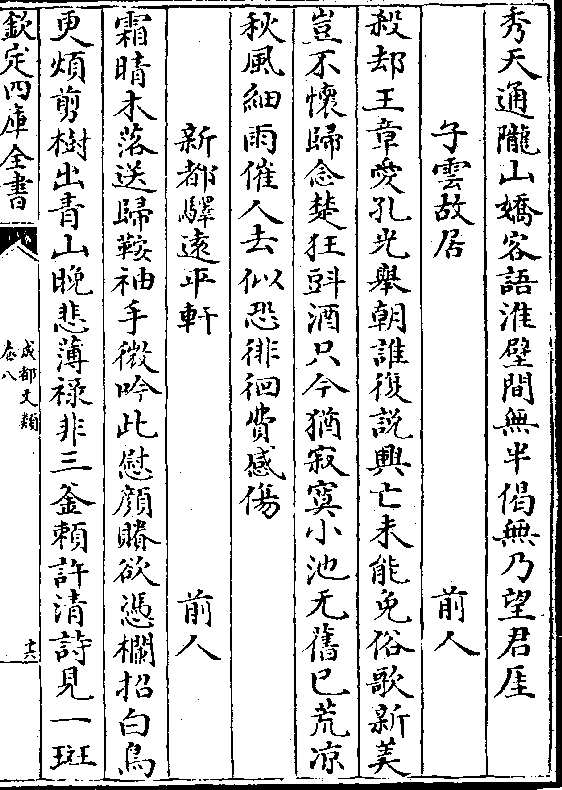 秀天通隴山嬌客語淮壁間無半偈無乃望君厓
子雲故居　前人
殺却王章愛孔光舉朝誰復說興亡未能免俗歌新美
豈不懷歸念楚狂㪷酒只今猶寂寞小池无舊已荒凉
秋風細雨催人去似恐徘徊費感傷
新都驛遠平軒　前人
霜晴木落送歸鞍袖手微吟此慰顔賸欲憑欄招白鳥
更煩剪樹出青山晚悲薄祿非三釜賴許清詩見一斑
欽定四庫全書
成都文類
卷八
十三